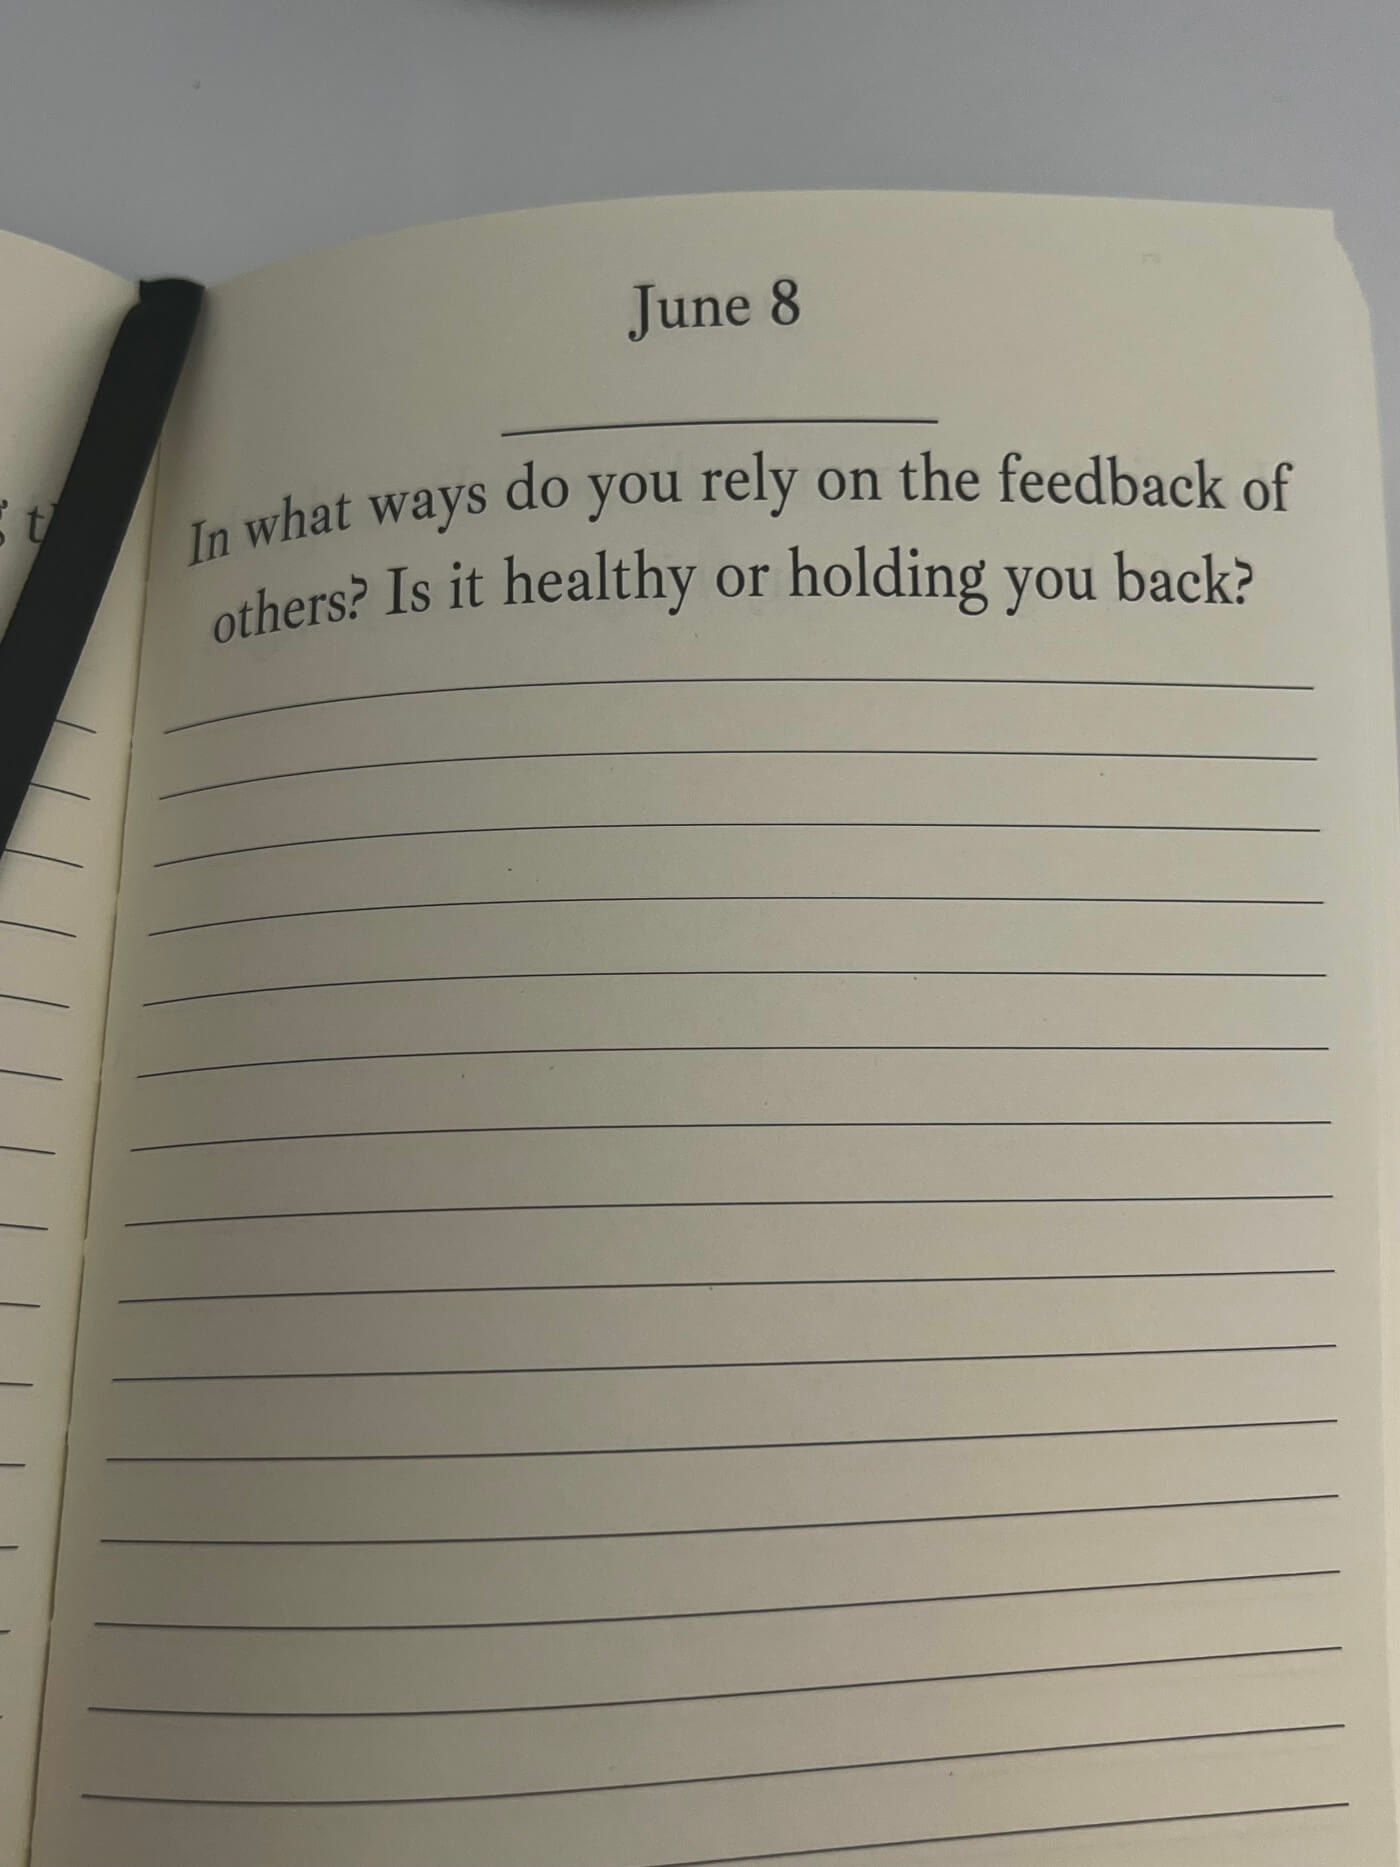 June 8
In what ways do you rely on the feedback of
others? Is it healthy or holding you back?